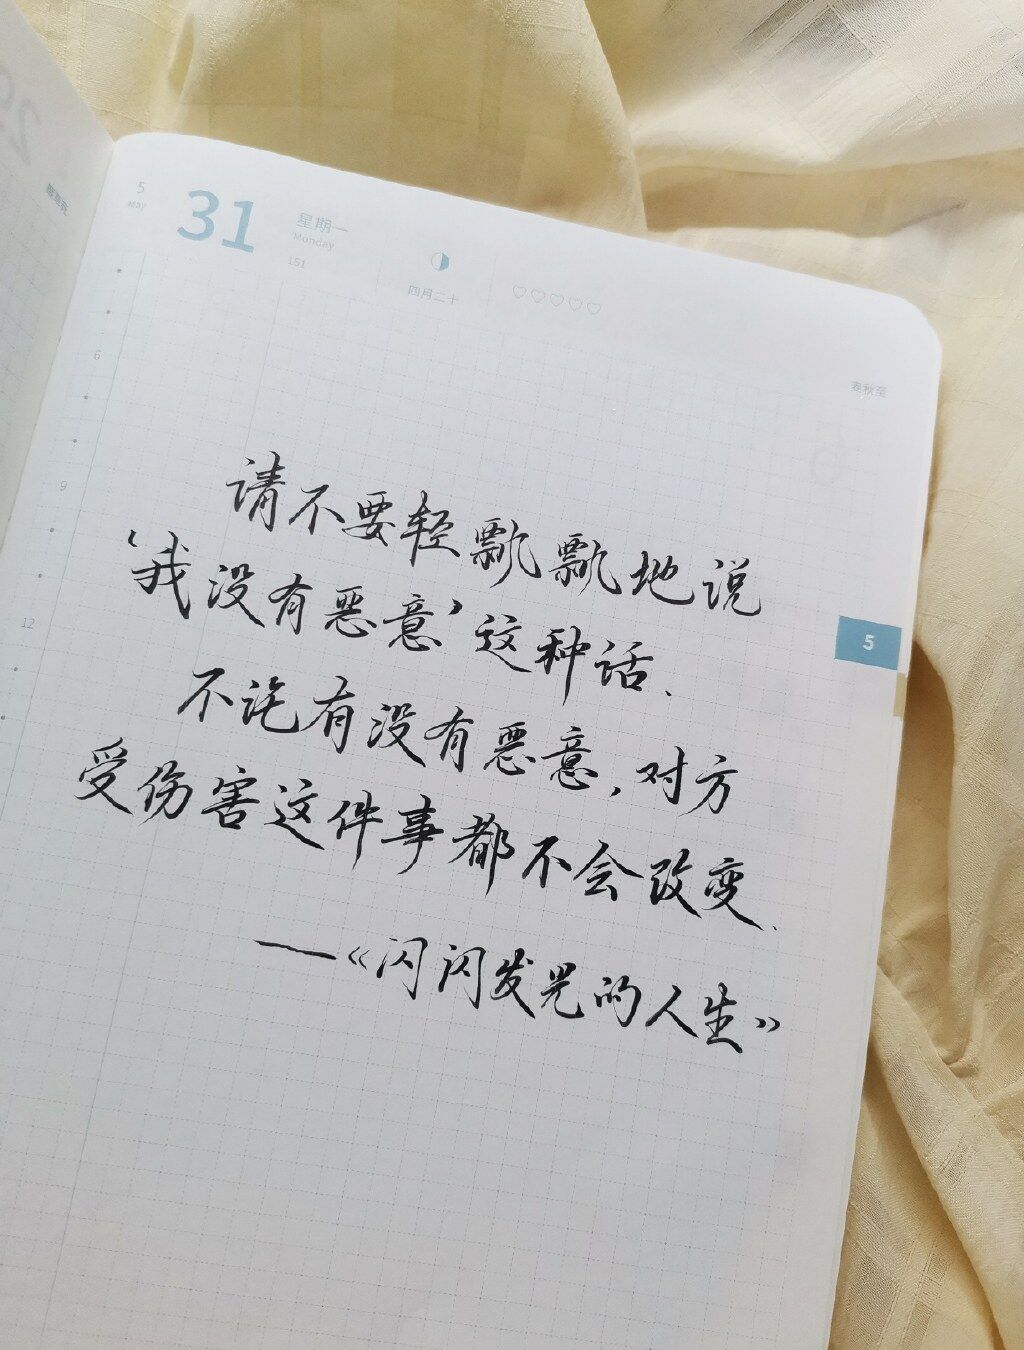 5
May
31
星期一
Monday
151
四月二十
麦秋至
6
9
12
5
请不要轻飘飘地说
‘我没有恶意’这种话.
不论有没有恶意,对方
受伤害这件事都不会改变.
—《闪闪发光的人生》